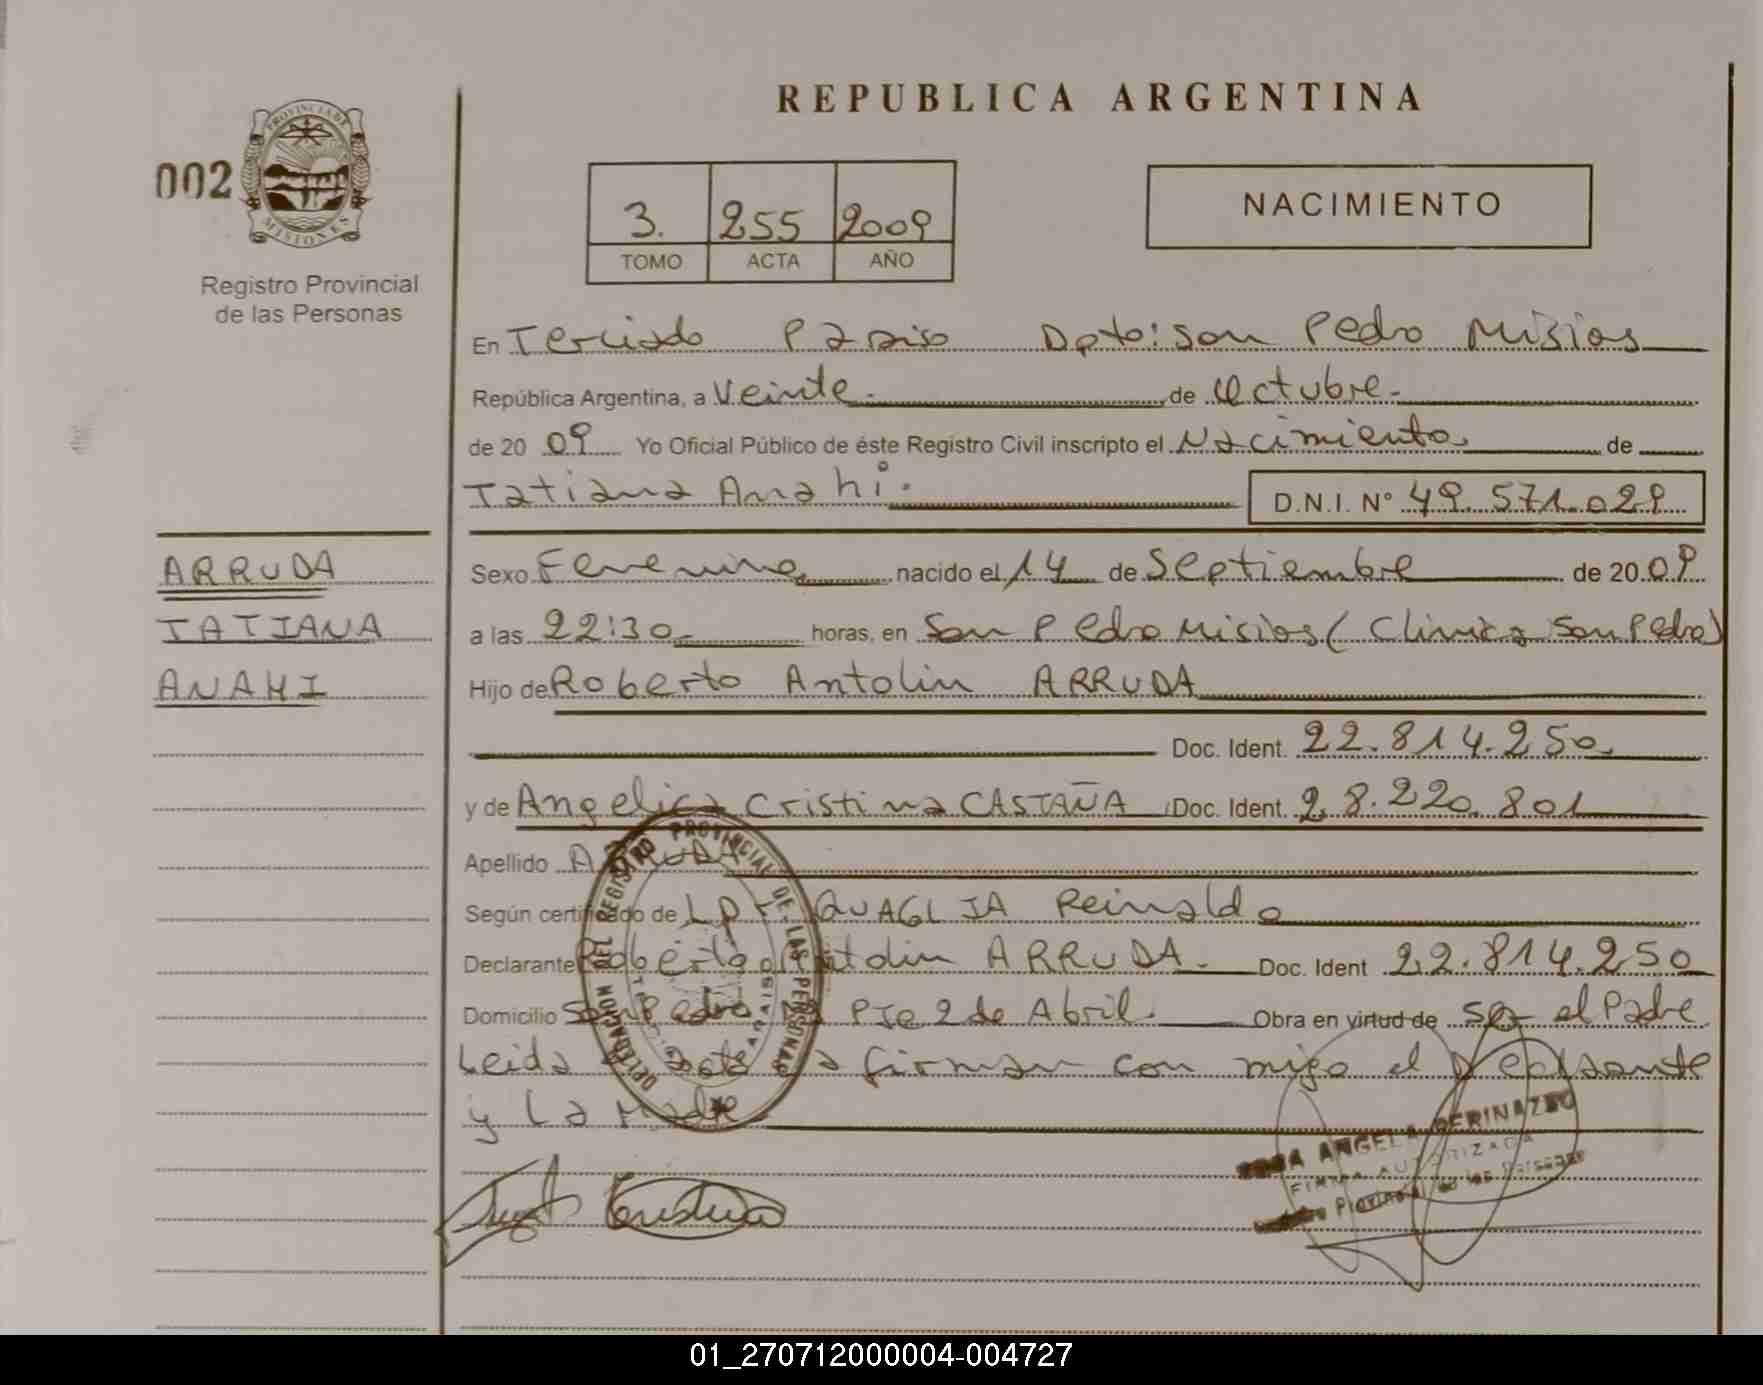 REPUBLICA ARGENTINA
002
PROVINCIA DE
MISIONES
Registro Provincial
de las Personas
3. 255 2009
TOMO ACTA AÑO
NACIMIENTO
En Terciado Paraiso Dpto: San Pedro Misios
República Argentina, a Veinte.- de Octubre.-
de 20 09 Yo Oficial Público de éste Registro Civil inscripto el Nacimiento de
Tatiana Anahi.
D.N.I. Nº 49.571.029
ARRUDA
TATIANA
ANAHI
Sexo Femenino nacido el 14 de Septiembre de 20 09
a las 22:30 horas, en San Pedro Misios (Clinica San Pedro)
Hijo de Roberto Antolin ARRUDA
Doc. Ident. 22.814.250
y de Angelica Cristina CASTAÑA Doc. Ident. 28.220.801
Apellido ARRUDA
Según certificado de QUAGLIA Reinaldo
Declarante Roberto Antolin ARRUDA. Doc. Ident 22.814.250
Domicilio San Pedro Pje 2 de Abril. Obra en virtud de ser el Padre
Leida acta la firman con migo el declarante
y La Madre
DELEGACION DEL REGISTRO PROVINCIAL DE LAS PERSONAS
ROSA ANGELA
FIRMA AUTORIZADA
de las Personas
01_270712000004-004727